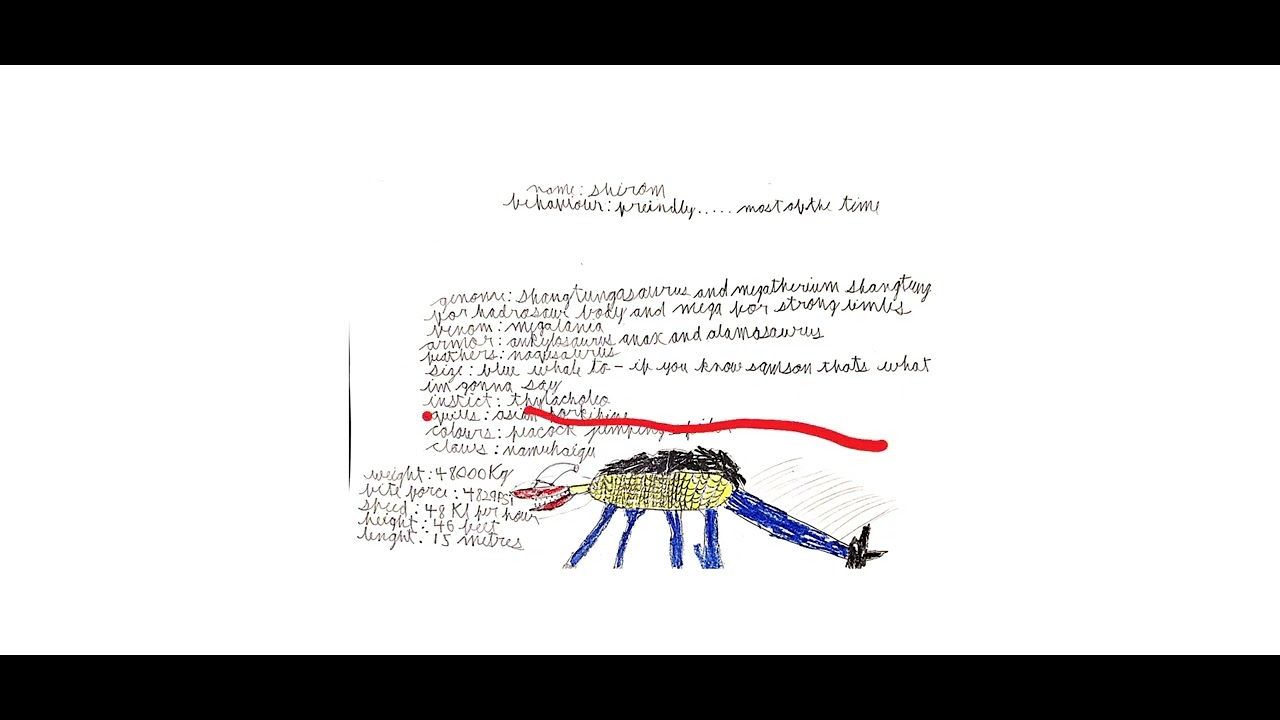 name: shirom
behaviour: freindly..... most of the time
genome: shangtungasaurus and megatherium shangtung
for hadrosaur body and mega for strong limbs
venom: megalania
armor: ankylosaurus anax and alamosaurus
feathers: nagusaurus
size: blue whale to - if you know samson thats what
im gonna say
instict: thylacholeo
quills: asian porkipine
colours: peacock jumping spider
claws: namuhaigu
weight: 48000Kg
bite force: 4829PSI
speed: 48 Kl per hour
height: 46 feet
lenght: 15 metres